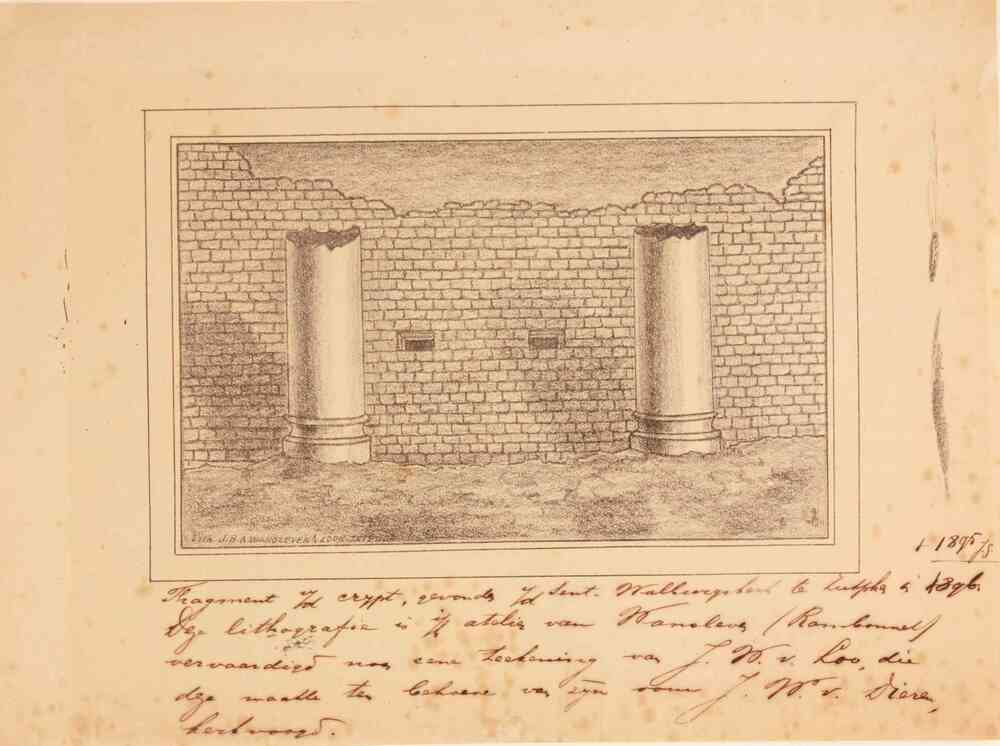 LITH. J.B.A. WANSLEVEN & ZOON ZUTPHEN
1 1895/8
Fragment v/d crypt, gevonden v/d Sint. Walburgskerk te Zutphen in 1896.
Deze lithografie is i/h atelier van Wansleven (Rambonnet)
vervaardigd naar eene teekening van J. W. v. Loo, die
deze maakte ten behoeve van zijn oom J. W. v. Dieren,
kerkvoogd.